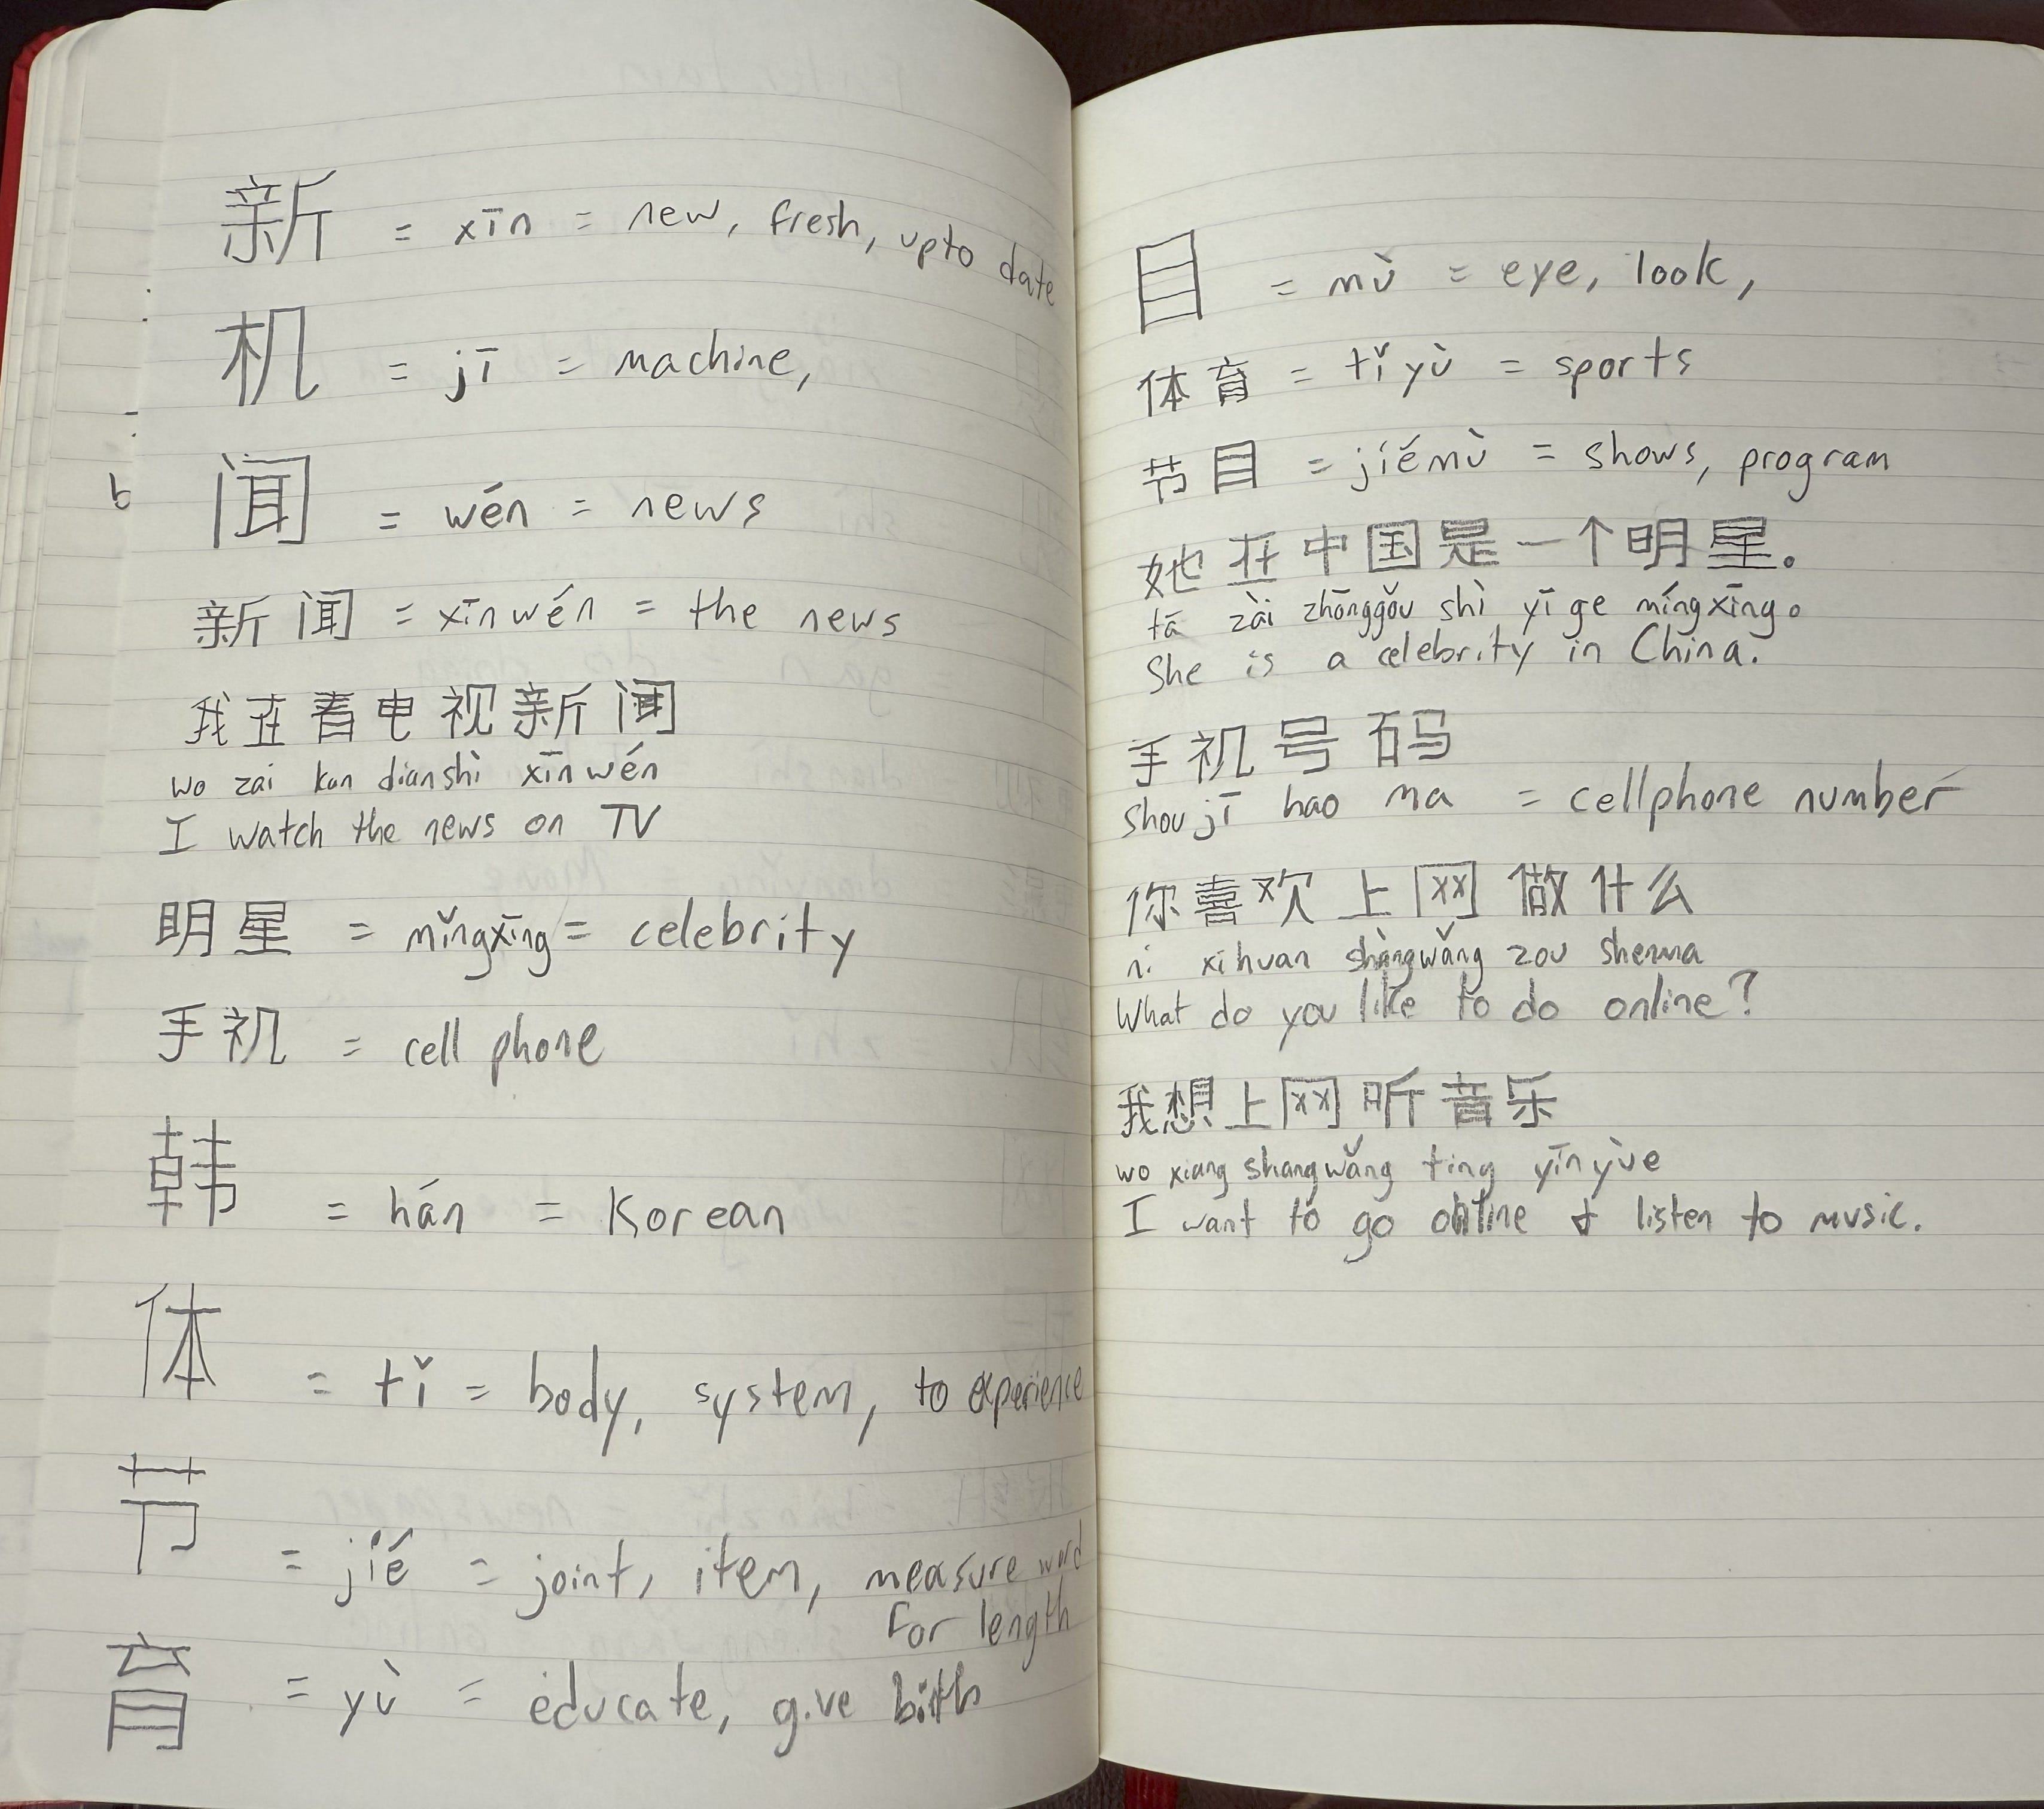 新 = xīn = new, fresh, upto date
机 = jī = machine,
闻 = wén = news
新闻 = xīnwén = the news
我在看电视新闻
wo zai kan dianshì xīnwén
I watch the news on TV
明星 = mǐngxīng = celebrity
手机 = cell phone
韩 = hán = Korean
体 = tǐ = body, system, to experience
节 = jié = joint, item, measure word
for length
育 = yù = educate, give birth
目 = mǔ = eye, look,
体育 = tǐyù = sports
节目 = jiémù = shows, program
她在中国是一个明星。
tā zài zhōnggǒu shì yī ge míngxīng。
She is a celebrity in China.
手机号码
shoujī hao ma = cellphone number
你喜欢上网做什么
ni xihuan shàngwǎng zou shenma
What do you like to do online?
我想上网听音乐
wo xiang shangwǎng ting yīnyùe
I want to go online & listen to music.